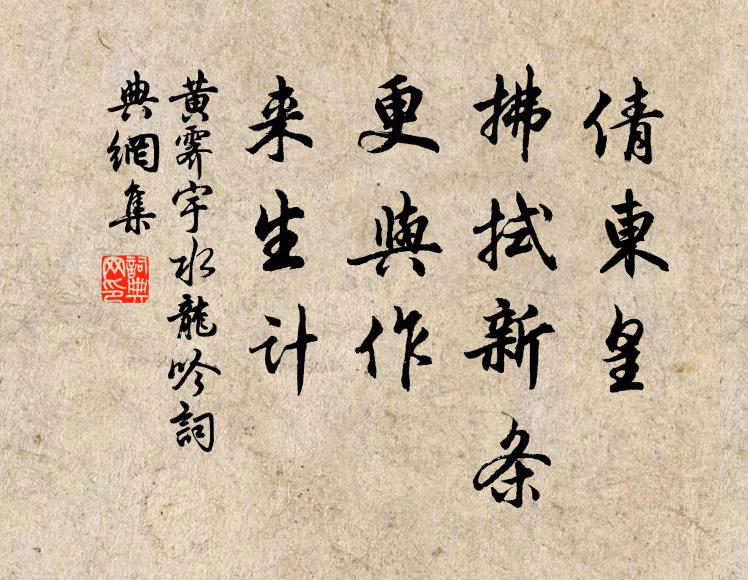 倩東皇
拂拭新条
更與作
来生计
黄霽宇水龍吟詞
典網集
詞典
网印